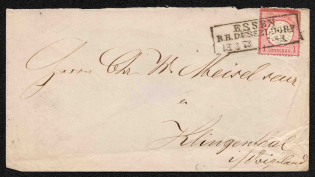 ESSEN
B.R. DÜSSELDORF
Herrn Chr. W. Meisel sen.
in
Klingenthal
i/Voigtland